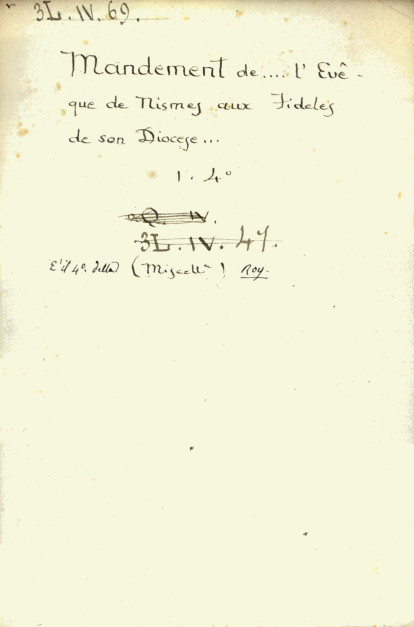 3L. IV. 69.
Mandement de.... l'Evê-
que de Nismes aux Fideles
de son Diocese...
1. 4°
Q. IV.
3L. IV. 47.
E' il 4°. della (Miscell.ª) Roy.